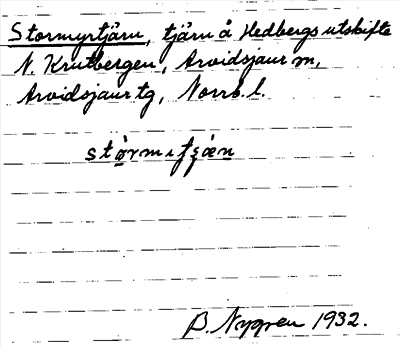 Stormyrtjärn, tjärn å Hedbergs utskifte
N. Krutbergen, Arvidsjaur m,
Arvidsjaur tg, Norrb. l.
B. Nygren 1932.